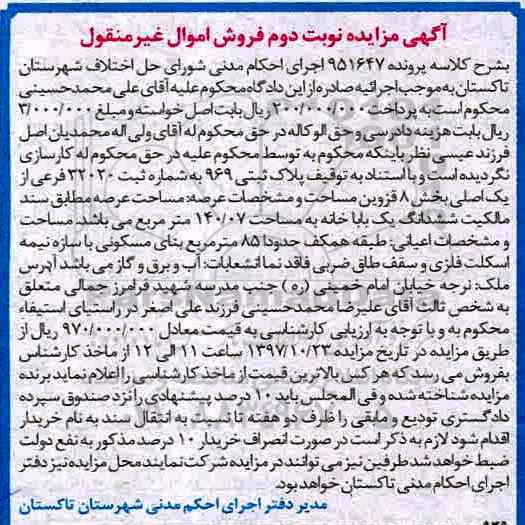 آگهی مزایده نوبت دوم فروش اموال غیرمنقول
بشرح کلاسه پرونده ۹۵۱۶۴۷ اجرای احکام مدنی شورای حل اختلاف شهرستان
تاکستان به موجب اجرائیه صادره از این دادگاه محکوم علیه آقای علی محمدحسینی
محکوم است به پرداخت ۲۰۰/۰۰۰/۰۰۰ ریال بابت اصل خواسته و مبلغ ۳/۰۰۰/۰۰۰
ریال بابت هزینه دادرسی و حق الوکاله در حق محکوم له آقای ولی اله محمدیان اصل
فرزند عیسی نظر باینکه محکوم به توسط محکوم علیه در حق محکوم له کارسازی
نگردیده است و با استناد به توقیف پلاک ثبتی ۹۶۹ به شماره ثبت ۳۲۰۲۰ فرعی از
یک اصلی بخش ۸ قزوین مساحت و مشخصات عرصه: مساحت عرصه مطابق سند
مالکیت ششدانگ یک بابا خانه به مساحت ۱۴۰/۰۷ متر مربع می باشد. مساحت
و مشخصات اعیانی: طبقه همکف حدودا ۸۵ مترمربع بنای مسکونی با سازه نیمه
اسکلت فلزی و سقف طاق ضربی فاقد نما انشعابات: آب و برق و گاز می باشد آدرس
ملک: نرجه خیابان امام خمینی (ره) جنب مدرسه شهید فرامرز جمالی متعلق
به شخص ثالث آقای علیرضا محمدحسینی فرزند علی اصغر در راستیای استیفاء
محکوم به و با توجه به ارزیابی کارشناسی به قیمت معادل ۹۷۰/۰۰۰/۰۰۰ ریال از
طریق مزایده در تاریخ مزایده ۱۳۹۷/۱۰/۲۳ ساعت ۱۱ الی ۱۲ از ماخذ کارشناس
بفروش می رسد که هر کس بالاترین قیمت از ماخذ کارشناسی را اعلام نماید برنده
مزایده شناخته شده و فی المجلس باید ۱۰ درصد پیشنهادی را نزد صندوق سپرده
دادگستری تودیع و مابقی را ظرف دو هفته تا نسبت به انتقال سند به نام خریدار
اقدام شود لازم به ذکر است در صورت انصراف خریدار ۱۰ درصد مذکور به نفع دولت
ضبط خواهد شد طرفین نیز می توانند در مزایده شرکت نمایند محل مزایده نیز دفتر
اجرای احکام مدنی تاکستان خواهد بود.
مدیر دفتر اجرای احکم مدنی شهرستان تاکستان